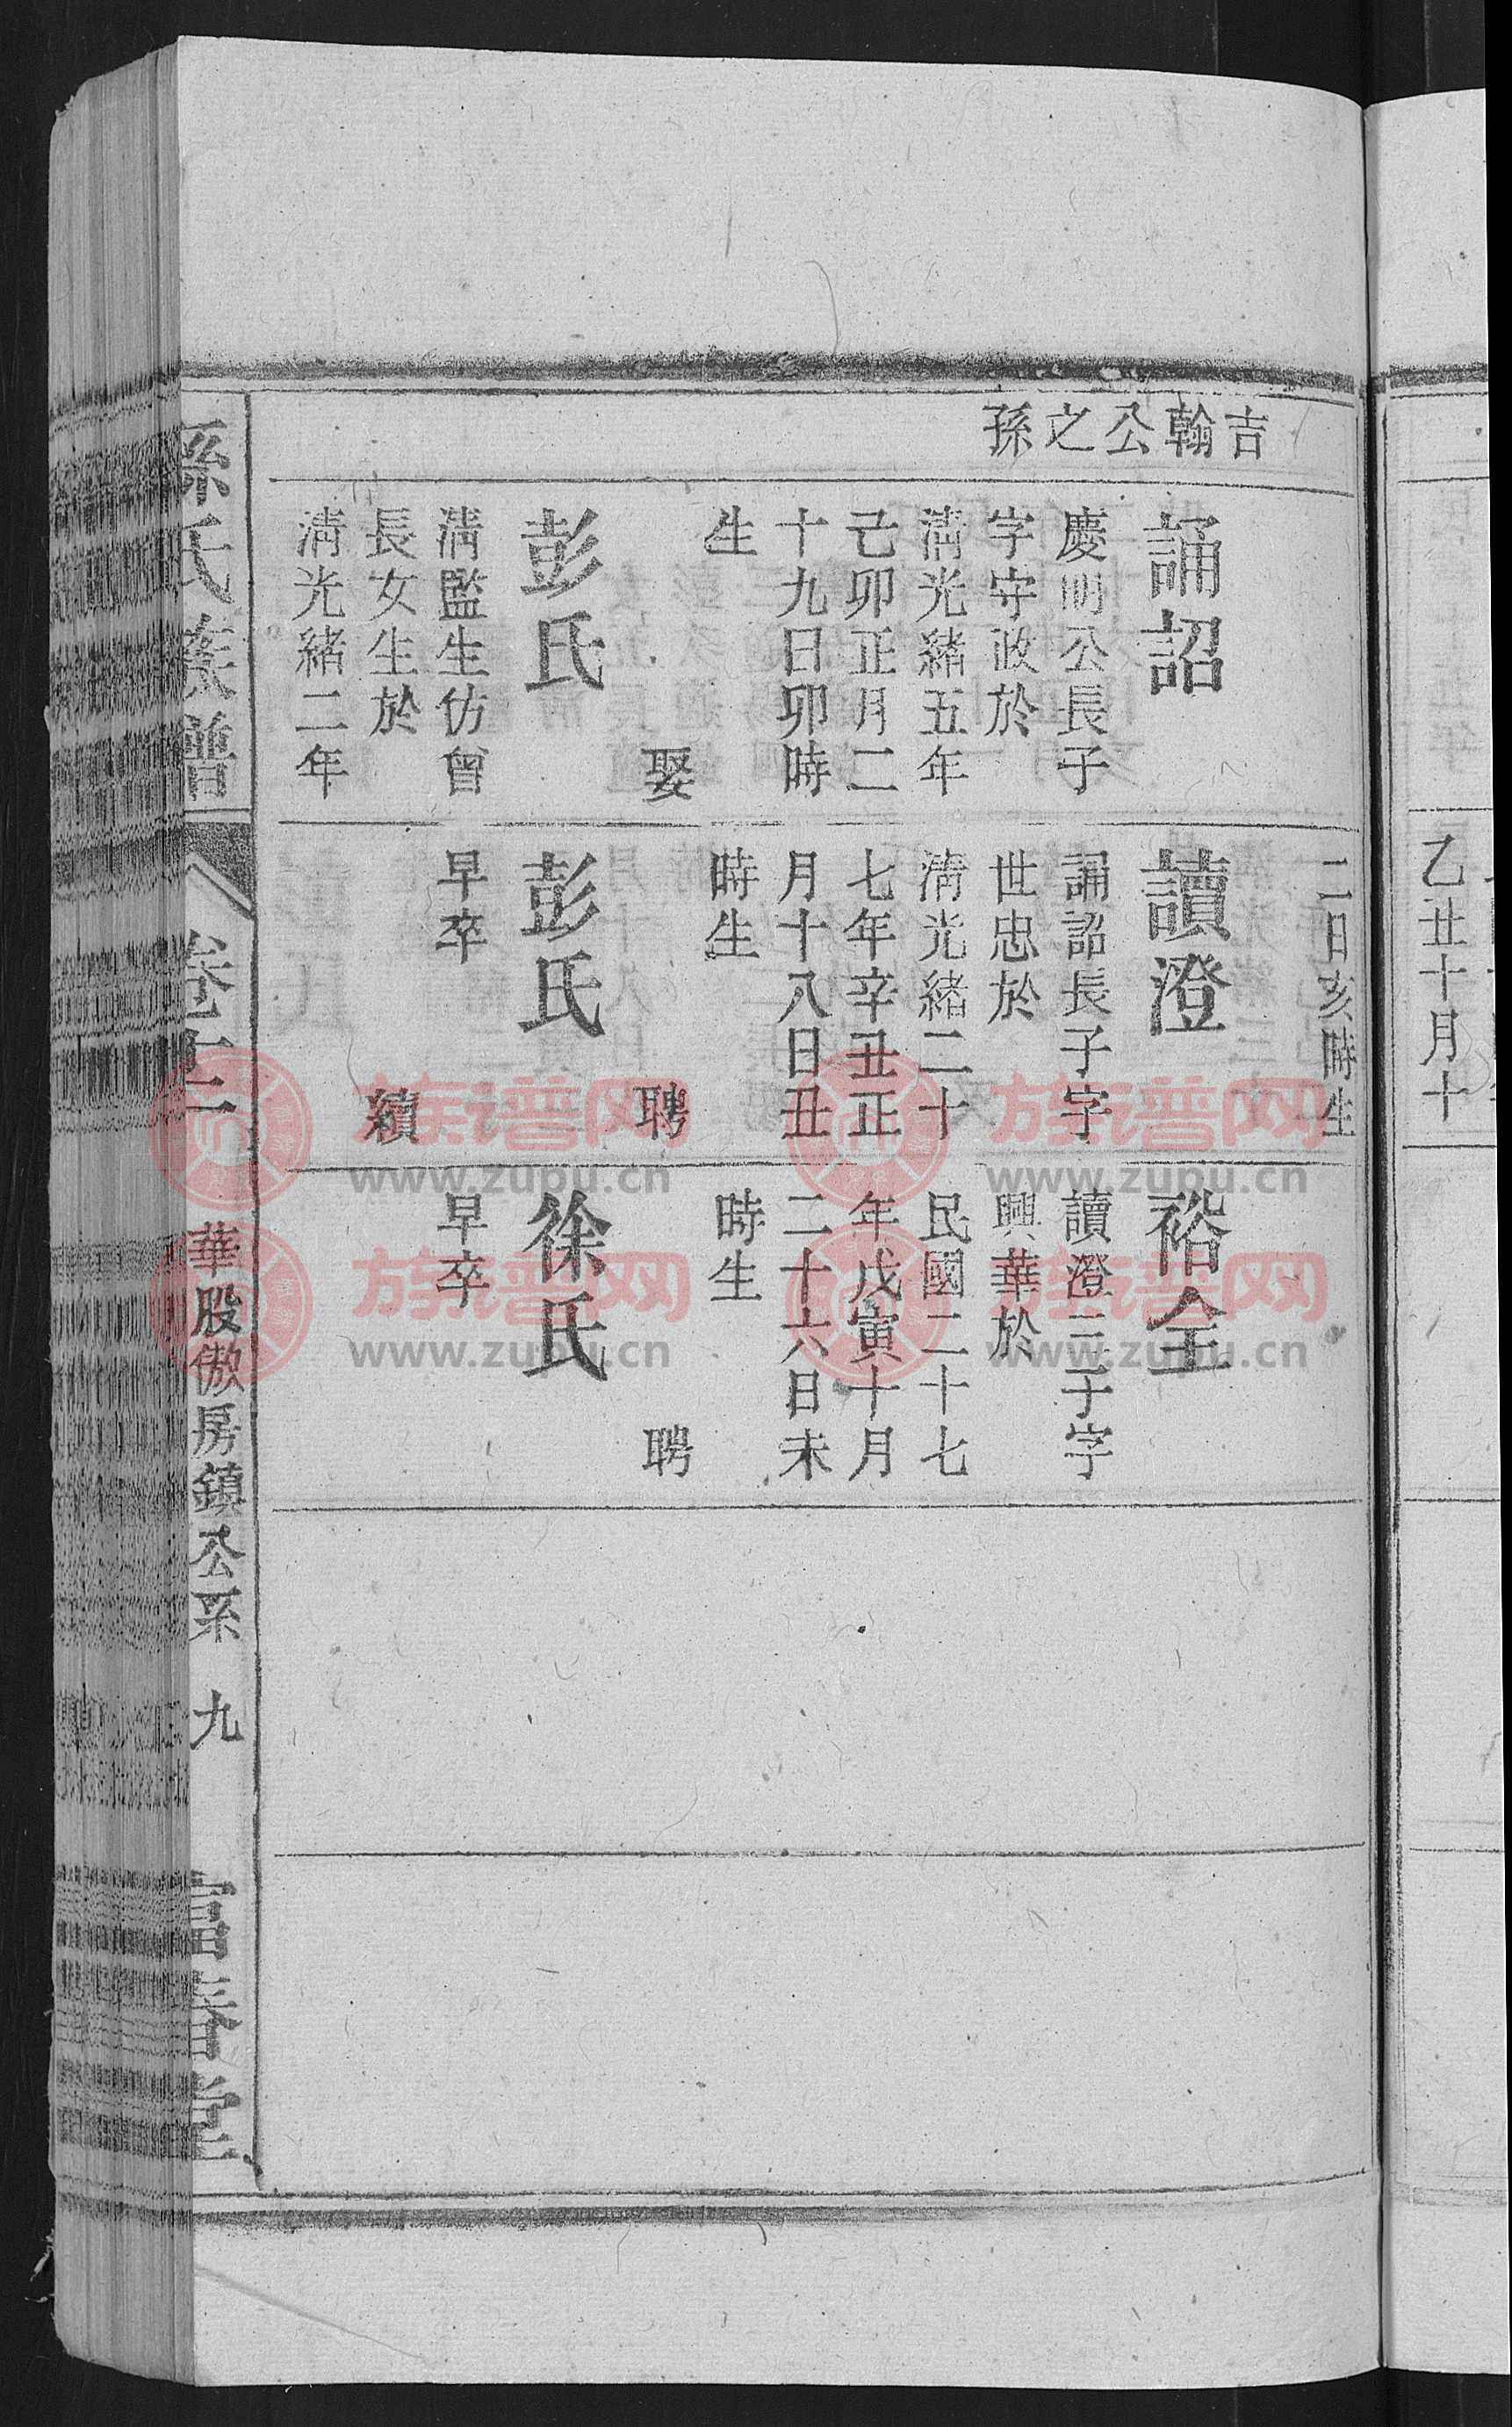 乙丑十月十
吉翰公之孫
誦詔
慶明公長子
字守政於
清光緒五年
己卯正月二
十九日卯時
生
娶
彭氏
清監生仿曾
長女生於
清光緒二年
二日亥時生
讀澄
誦詔長子字
世忠於
清光緒二十
七年辛丑正
月十八日丑
時生
聘
彭氏
早卒
續
裕全
讀澄三子字
興華於
民國二十七
年戊寅十月
二十六日未
時生
聘
徐氏
早卒
孫氏族譜
華股傲房鎮公系
九
族谱网
www.zupu.cn
族谱网
www.zupu.cn
族谱网
www.zupu.cn
族谱网
www.zupu.cn